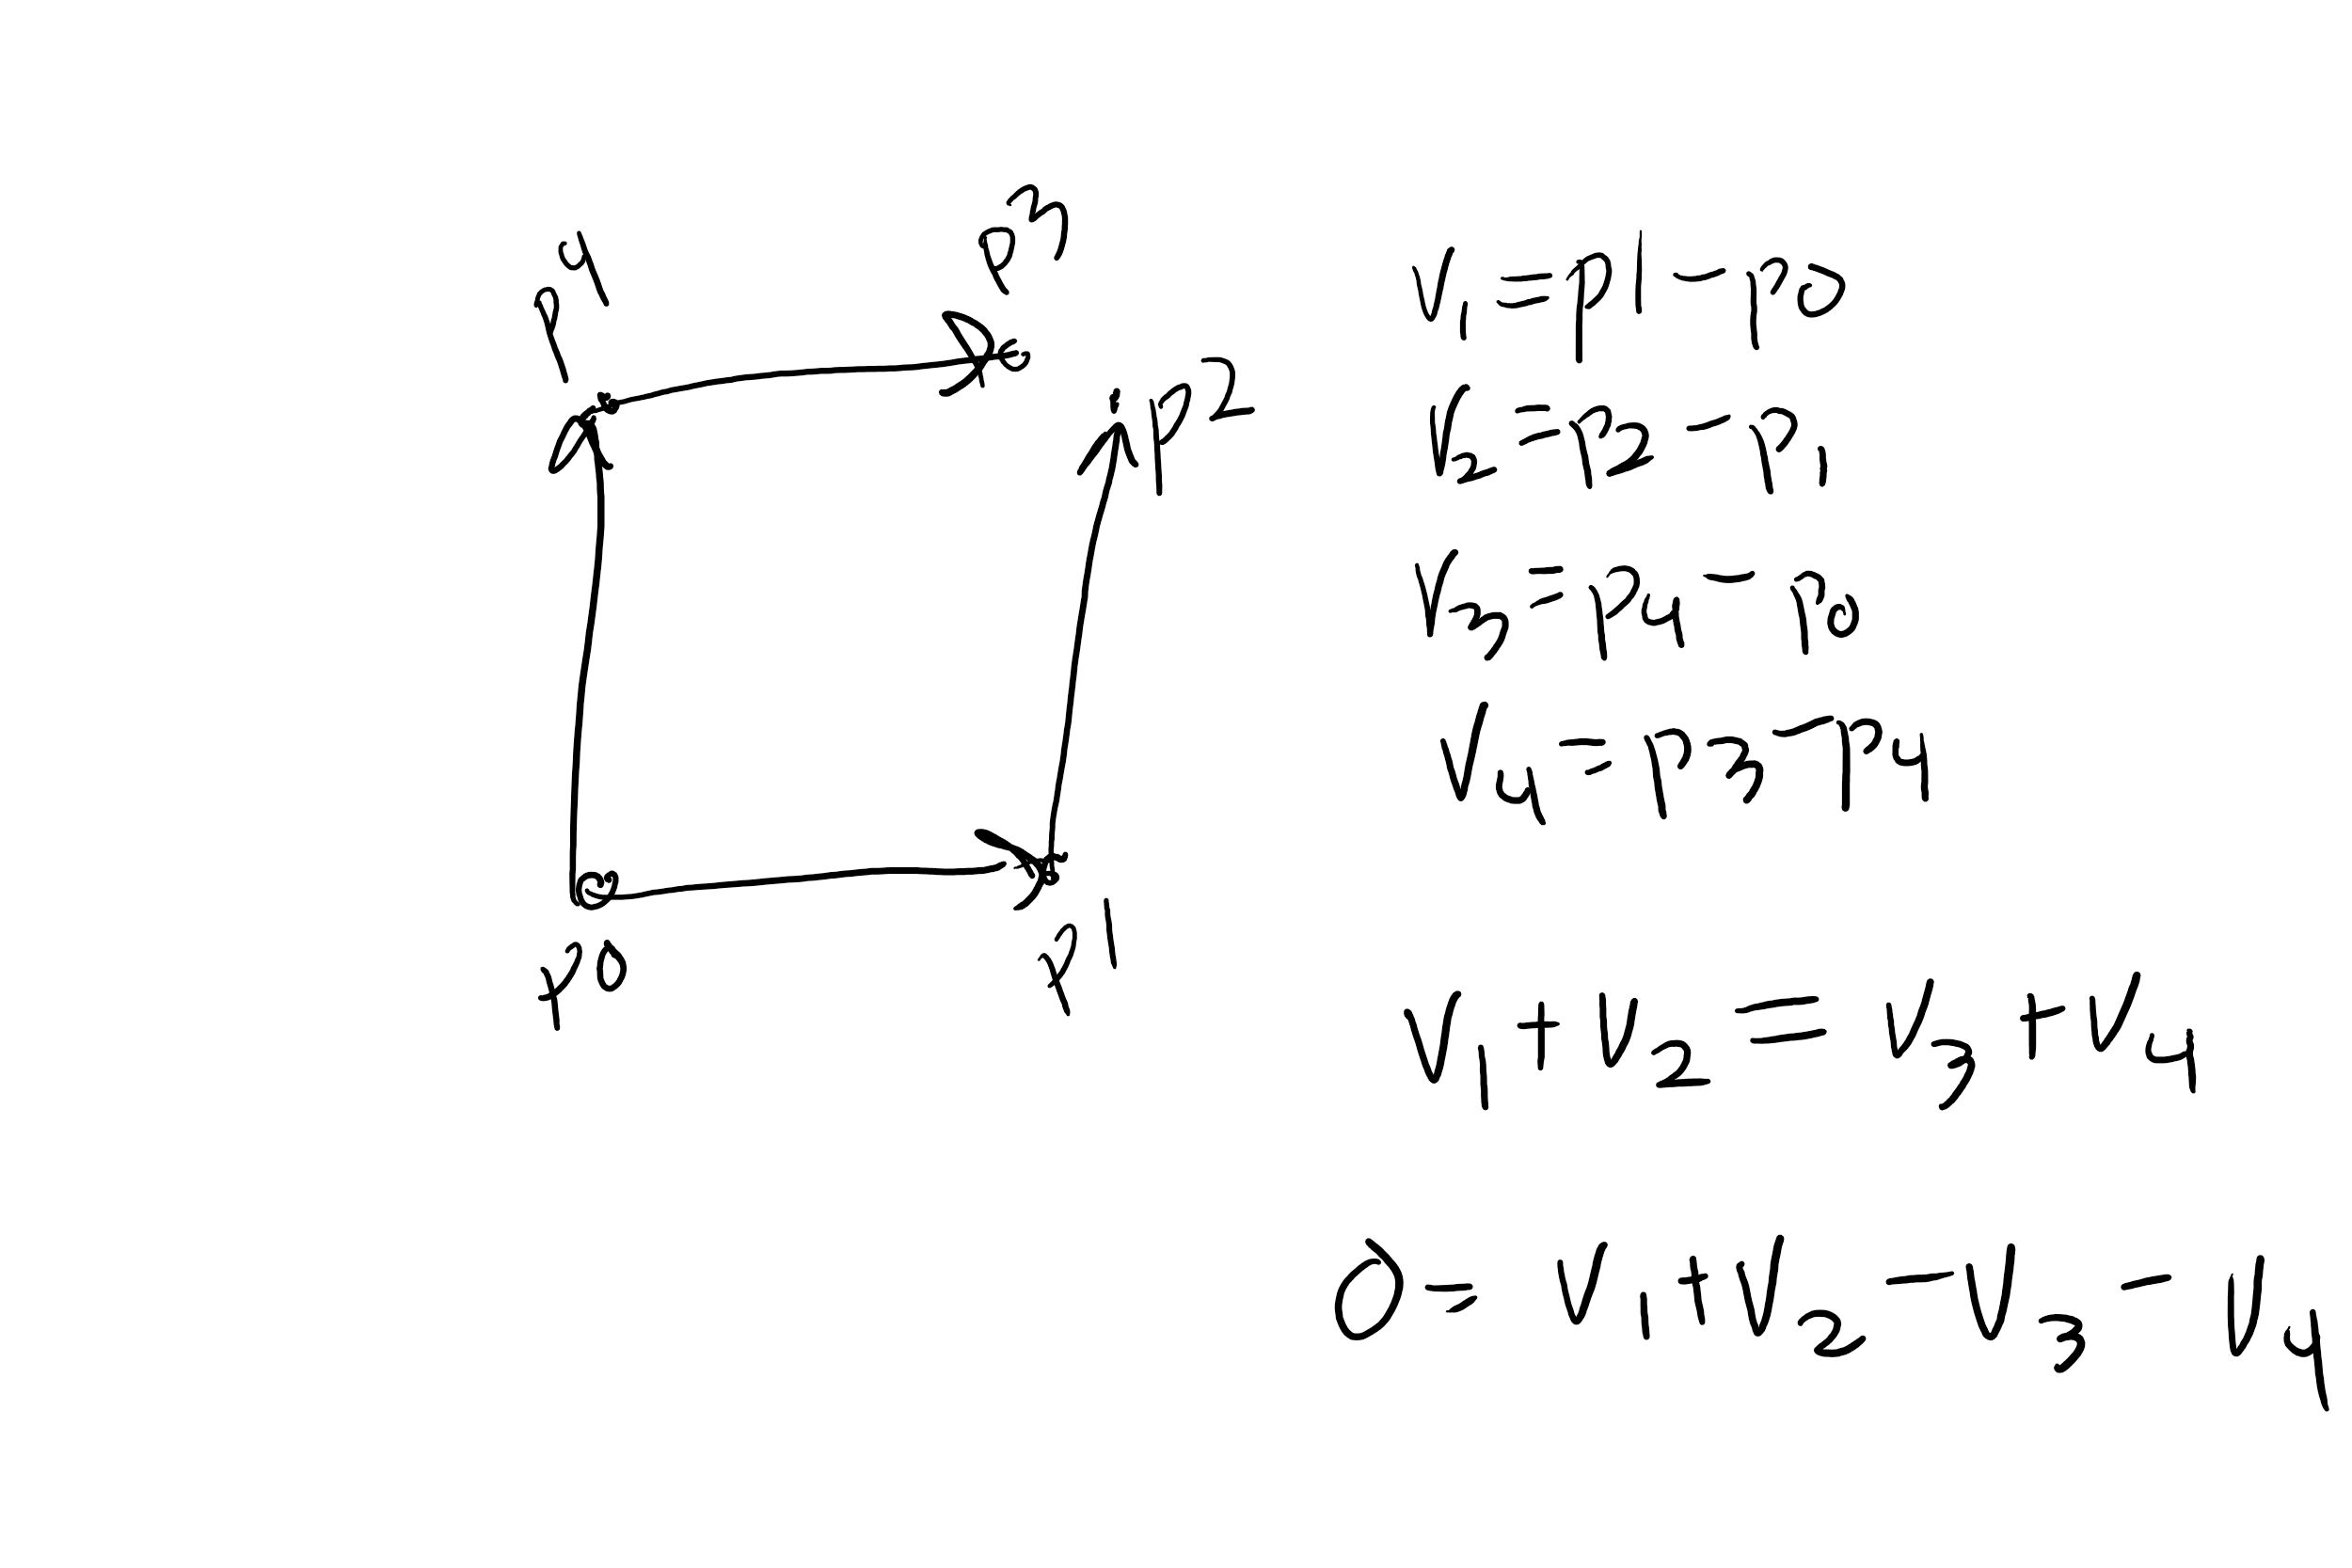 p4
p3
p2
p0
p1
V₁ = p1 - p0
V₂ = p2 - p1
V₃ = p4 - p0
V₄ = p3 - p4
V₁ + V₂ = V₃ + V₄
0 = V₁ + V₂ - V₃ - V₄